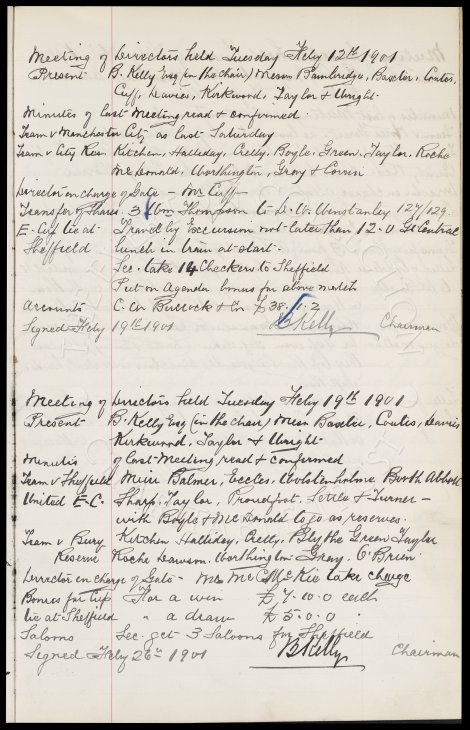 Meeting of Directors held Tuesday Feby 12th 1901
Present B. Kelly Esq (in the chair) Messrs Bainbridge, Baxter, Coates,
Cuff, Davies, Kirkwood, Taylor & Wright
Minutes of last Meeting read & confirmed
Team v Manchester City as last Saturday
Team v City Res Kitchen, Halliday, Crelly, Boyle, Green, Taylor, Roche
McDonald, Worthington, Gray & Corrin
Director in charge of Gate - Mr Cuff
Transfer of Shares 3 Wm Thompson to D. W. Winstanley 127/129.
E. Cup tie at Travel by Excursion not later than 12.0 St Central
Sheffield lunch in train at start.
Sec. take 14 Checkers to Sheffield
Put on Agenda bonus for above match
Accounts C. W. & Co £38.11.2
Signed Feby 19th 1901 B Kelly Chairman
Meeting of Directors held Tuesday Feby 19th 1901
Present B. Kelly Esq (in the chair) Messrs Baxter, Coates, Davies
Kirkwood, Taylor & Wright
Minutes of last Meeting read & confirmed
Team v Sheffield Muir Balmer, Eccles, Wolstenholme Booth Abbott
United E.C. Sharp, Taylor, Proudfoot, Settle & Turner -
with Boyle & McDonald to go as reserves.
Team v Bury Kitchen Halliday, Crelly, Blythe Green Taylor
Reserve Roche Dawson Worthington Gray. O'Brien
Director in charge of Gate - Mr take charge
Bonus for Cup For a win £7.10.0 each
tie at Sheffield " a draw £5.0.0 "
Saloons Sec. get 3 Saloons for Sheffield
Signed Feby 26th 1901 B Kelly Chairman